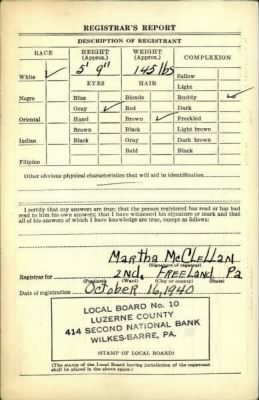 REGISTRAR'S REPORT
DESCRIPTION OF REGISTRANT
RACE HEIGHT (Approx.) WEIGHT (Approx.) COMPLEXION
5' 9" 145 lbs
White ✓ EYES HAIR Sallow
Light
Negro Blue Blonde Ruddy ✓
Gray ✓ Red Dark
Oriental Hazel Brown ✓ Freckled
Brown Black Light brown
Indian Black Gray Dark brown
Bald Black
Filipino
Other obvious physical characteristics that will aid in identification
I certify that my answers are true; that the person registered has read or has had
read to him his own answers; that I have witnessed his signature or mark and that
all of his answers of which I have knowledge are true, except as follows:
Martha McClellan
(Signature of registrar)
Registrar for 2nd. Freeland Pa
(Precinct) (Ward) (City or county) (State)
Date of registration October 16, 1940
LOCAL BOARD No. 10
LUZERNE COUNTY
414 SECOND NATIONAL BANK
WILKES-BARRE, PA.
(STAMP OF LOCAL BOARD)
(The stamp of the Local Board having jurisdiction of the registrant
shall be placed in the above space.)